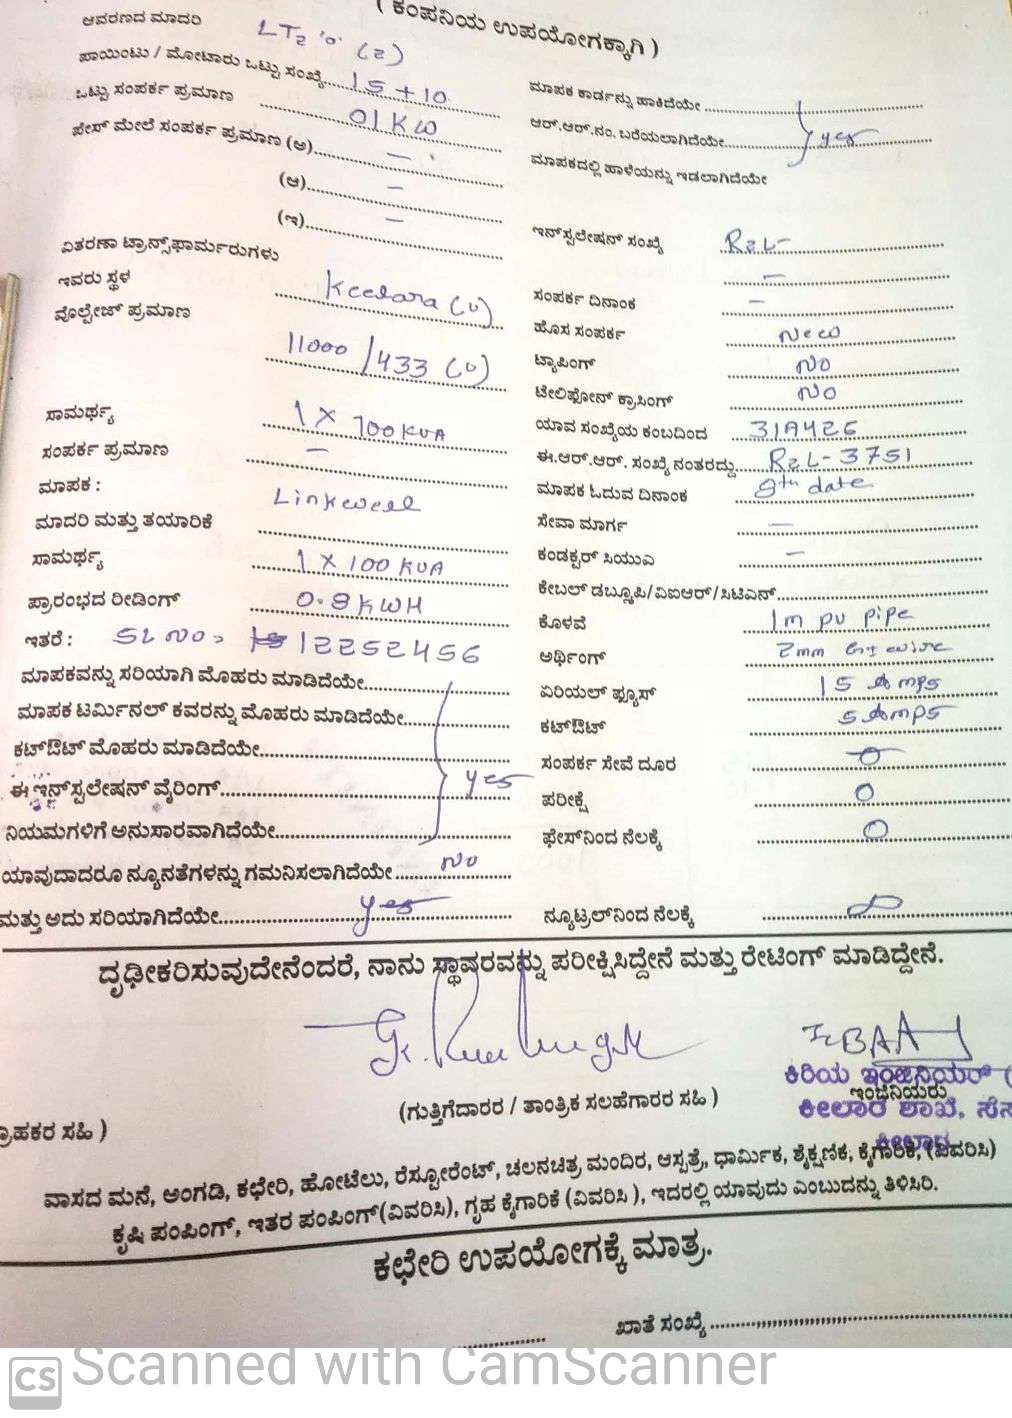 ( ಕಂಪನಿಯ ಉಪಯೋಗಕ್ಕಾಗಿ )
ಆವರಣದ ಮಾದರಿ LT2 'a' (2)
ಪಾಯಿಂಟು / ಮೋಟಾರು ಒಟ್ಟು ಸಂಖ್ಯೆ 15 + 10
ಒಟ್ಟು ಸಂಪರ್ಕ ಪ್ರಮಾಣ 01 KW
ಪೇಸ್ ಮೇಲೆ ಸಂಪರ್ಕ ಪ್ರಮಾಣ (ಅ) —
(ಆ) —
(ಇ) —
ವಿತರಣಾ ಟ್ರಾನ್ಸ್‌ಫಾರ್ಮರುಗಳು
ಇವರು ಸ್ಥಳ Keelara (v)
ವೊಲ್ಟೇಜ್ ಪ್ರಮಾಣ
11000 / 433 (v)
ಸಾಮರ್ಥ್ಯ 1 X 100 KVA
ಸಂಪರ್ಕ ಪ್ರಮಾಣ —
ಮಾಪಕ :
ಮಾದರಿ ಮತ್ತು ತಯಾರಿಕೆ Linkwell
ಸಾಮರ್ಥ್ಯ 1 X 100 KVA
ಪ್ರಾರಂಭದ ರೀಡಿಂಗ್ 0.9 KWH
ಇತರೆ : SL NO 12252456
ಮಾಪಕವನ್ನು ಸರಿಯಾಗಿ ಮೊಹರು ಮಾಡಿದೆಯೇ
ಮಾಪಕ ಟರ್ಮಿನಲ್ ಕವರನ್ನು ಮೊಹರು ಮಾಡಿದೆಯೇ
ಕಟ್‌ಔಟ್ ಮೊಹರು ಮಾಡಿದೆಯೇ
ಈ ಇನ್‌ಸ್ಟಲೇಷನ್ ವೈರಿಂಗ್ yes
ನಿಯಮಗಳಿಗೆ ಅನುಸಾರವಾಗಿದೆಯೇ
ಯಾವುದಾದರೂ ನ್ಯೂನತೆಗಳನ್ನು ಗಮನಿಸಲಾಗಿದೆಯೇ No
ಮತ್ತು ಅದು ಸರಿಯಾಗಿದೆಯೇ yes
ಮಾಪಕ ಕಾರ್ಡನ್ನು ಹಾಕಿದೆಯೇ
ಆರ್.ಆರ್.ನಂ. ಬರೆಯಲಾಗಿದೆಯೇ yes
ಮಾಪಕದಲ್ಲಿ ಹಾಳೆಯನ್ನು ಇಡಲಾಗಿದೆಯೇ
ಇನ್‌ಸ್ಟಲೇಷನ್ ಸಂಖ್ಯೆ R2L-
—
ಸಂಪರ್ಕ ದಿನಾಂಕ —
ಹೊಸ ಸಂಪರ್ಕ New
ಟ್ಯಾಪಿಂಗ್ NO
ಟೇಲಿಫೋನ್ ಕ್ರಾಸಿಂಗ್ NO
ಯಾವ ಸಂಖ್ಯೆಯ ಕಂಬದಿಂದ 31A426
ಈ.ಆರ್.ಆರ್. ಸಂಖ್ಯೆ ನಂತರದ್ದು R2L-3751
ಮಾಪಕ ಓದುವ ದಿನಾಂಕ 9th date
ಸೇವಾ ಮಾರ್ಗ —
ಕಂಡಕ್ಟರ್ ಸಿಯುಎ —
ಕೇಬಲ್ ಡಬ್ಲೂಪಿ/ವಿಐಆರ್/ಸಿಟಿಎನ್
ಕೊಳವೆ 1m pv pipe
ಅರ್ಥಿಂಗ್ 2mm GI wire
ಏರಿಯಲ್ ಫ್ಯೂಸ್ 15 Amps
ಕಟ್‌ಔಟ್ 5 Amps
ಸಂಪರ್ಕ ಸೇವೆ ದೂರ 0
ಪರೀಕ್ಷೆ 0
ಫೇಸ್‌ನಿಂದ ನೆಲಕ್ಕೆ 0
ನ್ಯೂಟ್ರಲ್‌ನಿಂದ ನೆಲಕ್ಕೆ
ದೃಢೀಕರಿಸುವುದೇನೆಂದರೆ, ನಾನು ಸ್ಥಾವರವನ್ನು ಪರೀಕ್ಷಿಸಿದ್ದೇನೆ ಮತ್ತು ರೇಟಿಂಗ್ ಮಾಡಿದ್ದೇನೆ.
ಕಿರಿಯ ಇಂಜಿನಿಯರ್ (
ಇಂಜಿನಿಯರು
(ಗುತ್ತಿಗೆದಾರರ / ತಾಂತ್ರಿಕ ಸಲಹೆಗಾರರ ಸಹಿ )
ಕೀಲಾರ ಶಾಖೆ, ಸೆಸ
ಕೀಲಾರ
್ರಾಹಕರ ಸಹಿ )
ವಾಸದ ಮನೆ, ಅಂಗಡಿ, ಕಛೇರಿ, ಹೋಟೆಲು, ರೆಸ್ಟೋರೆಂಟ್, ಚಲನಚಿತ್ರ ಮಂದಿರ, ಆಸ್ಪತ್ರೆ, ಧಾರ್ಮಿಕ, ಶೈಕ್ಷಣಿಕ, ಕೈಗಾರಿಕೆ, (ವಿವರಿಸಿ)
ಕೃಷಿ ಪಂಪಿಂಗ್, ಇತರ ಪಂಪಿಂಗ್(ವಿವರಿಸಿ), ಗೃಹ ಕೈಗಾರಿಕೆ (ವಿವರಿಸಿ ), ಇದರಲ್ಲಿ ಯಾವುದು ಎಂಬುದನ್ನು ತಿಳಿಸಿರಿ.
ಕಛೇರಿ ಉಪಯೋಗಕ್ಕೆ ಮಾತ್ರ.
ಖಾತೆ ಸಂಖ್ಯೆ
CS Scanned with CamScanner